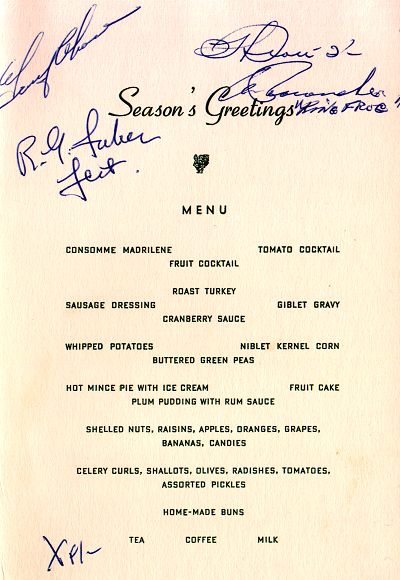 Season's Greetings
"RING FROG"
R.G. Faber
MENU
CONSOMME MADRILENE TOMATO COCKTAIL
FRUIT COCKTAIL
ROAST TURKEY
SAUSAGE DRESSING GIBLET GRAVY
CRANBERRY SAUCE
WHIPPED POTATOES NIBLET KERNEL CORN
BUTTERED GREEN PEAS
HOT MINCE PIE WITH ICE CREAM FRUIT CAKE
PLUM PUDDING WITH RUM SAUCE
SHELLED NUTS, RAISINS, APPLES, ORANGES, GRAPES,
BANANAS, CANDIES
CELERY CURLS, SHALLOTS, OLIVES, RADISHES, TOMATOES,
ASSORTED PICKLES
HOME-MADE BUNS
TEA COFFEE MILK